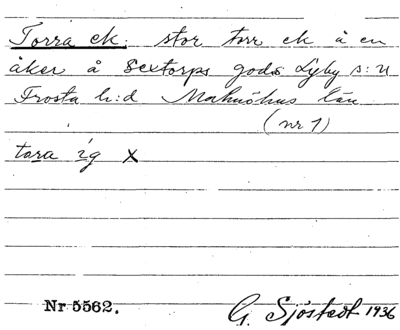 Torra ek: stor torr ek å en
åker å Sextorps gods Lyby s:n
Frosta h:d Malmöhus län
(nr 1)
tora ig x
Nr 5562. G. Sjöstedt 1936